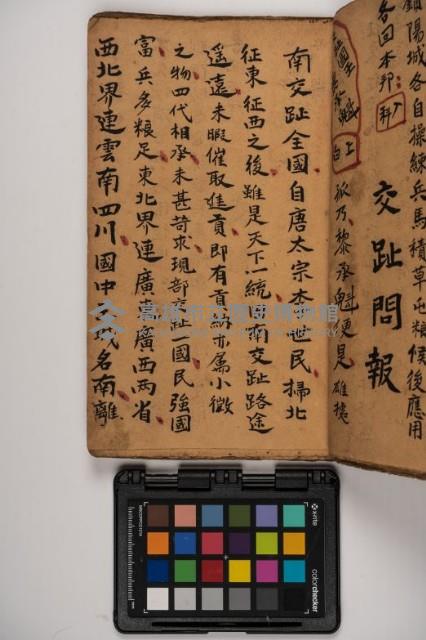 陽城各自操練兵馬積草屯粮候後應用
各回本邦 科
交趾問報
國王 上白 孤乃黎承魁便是雄據
南交趾全國自唐太宗李世民掃北
征東征西之後雖是天下一統南交趾路途
遙遠未暇催取進貢即有貢亦屬小徵
之物四代相承未甚苛求現部交趾一國民強國
富兵多粮足東北界連廣東廣西兩省
西北界連雲南四川國中城名南離
高雄市立歷史博物館
x-rite
colorchecker